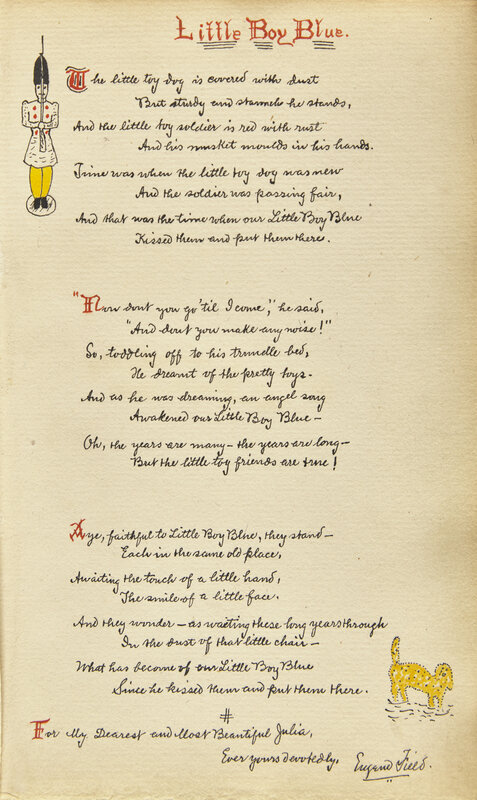 Little Boy Blue.
The little toy dog is covered with dust
But sturdy and stanch he stands,
And the little toy soldier is red with rust
And his musket moulds in his hands.
Time was when the little toy dog was new
And the soldier was passing fair,
And that was the time when our Little Boy Blue
Kissed them and put them there.
"Now dont you go 'til I come," he said,
"And dont you make any noise!"
So, toddling off to his trundle bed,
He dreamt of the pretty toys.
And as he was dreaming, an angel song
Awakened our Little Boy Blue –
Oh, the years are many – the years are long –
But the little toy friends are true!
Aye, faithful to Little Boy Blue, they stand –
Each in the same old place,
Awaiting the touch of a little hand,
The smile of a little face.
And they wonder – as waiting these long years through
In the dust of that little chair –
What has become of our Little Boy Blue
Since he kissed them and put them there.
#
For My Dearest and Most Beautiful Julia,
Ever yours devotedly,
Eugene Field.